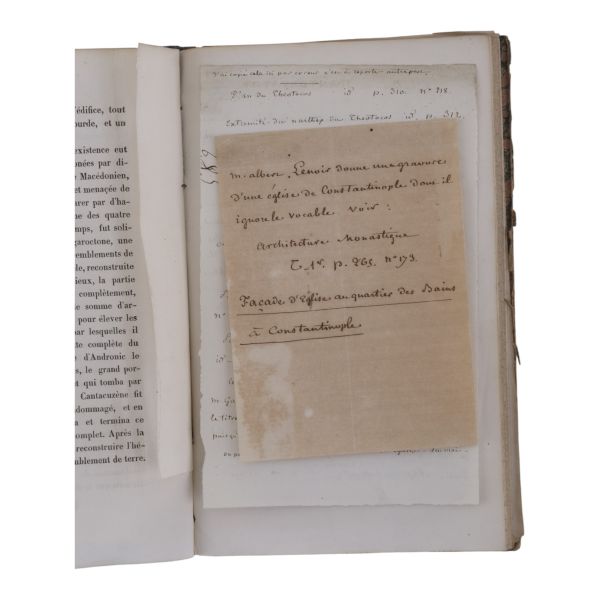 l'édifice, tout
ourde, et un
existence eut
onées par di-
Macédonien,
et menacée de
arer par d'ha-
ne des quatre
mps, fut soli-
garoctone, une
emblements de
le, reconstruite
ieux, la partie
complètement,
e somme d'ar-
pour élever les
par lesquelles il
te complète du
d'Andronic le
s, le grand por-
et qui tomba par
Cantacuzène fit
dommagé, et en
a et termina ce
omplet. Après la
reconstruire l'hé-
mblement de terre.
J'ai copié cela ici par erreur
du Theotocos id p. 310. n° 218.
Extremité du narthex du Theotocos id. p. 312.
m. albert Lenoir donne une gravure
d'une église de Constantinople dont il
ignore le vocable voir :
Architecture Monastique
T. 1er. p. 265. n° 173.
Façade d'Eglise au quartier des Bains
à Constantinople
m. Ga
le titre